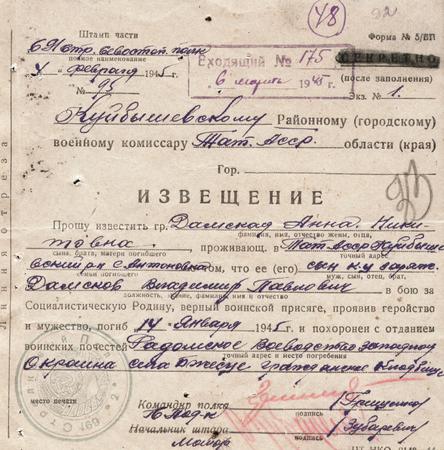 48
92
Штамп части
Форма № 5/БП
691 стр. Севастоп. полк
полное наименование
Входящий № 175
СЕКРЕТНО
4 февраля 1945 г.
6 марта 1945 г.
(после заполнения)
№ 93
Экз. № 1.
Куйбышевскому Районному (городскому)
военному комиссару Тат. Асср. области (края)
Гор.
ИЗВЕЩЕНИЕ
Прошу известить гр. Дамская Анна Ники-
фамилия, имя, отчество жены, отца,
товна проживающ. в Тат. Асср Куйбыше
сына, брата, матери погибшего
точный адрес
вский р-н с. Антоновка том, что ее (его) сын к-р заряж.
семьи погибшего
муж, сын, отец, брат,
Дамсков Владимир Павлович в бою за
должность, имя, фамилия и отчество
Социалистическую Родину, верный воинской присяге, проявив геройство
и мужество, погиб 14 Января 1945 г. и похоронен с отданием
воинских почестей Радомское Воеводство западная
точный адрес и место погребения
Окраина села гражданское
место печати
Командир полка Грищенко
П/полк
подпись
Начальник штаба Зубаревич
подпись
Майор
Линия отреза